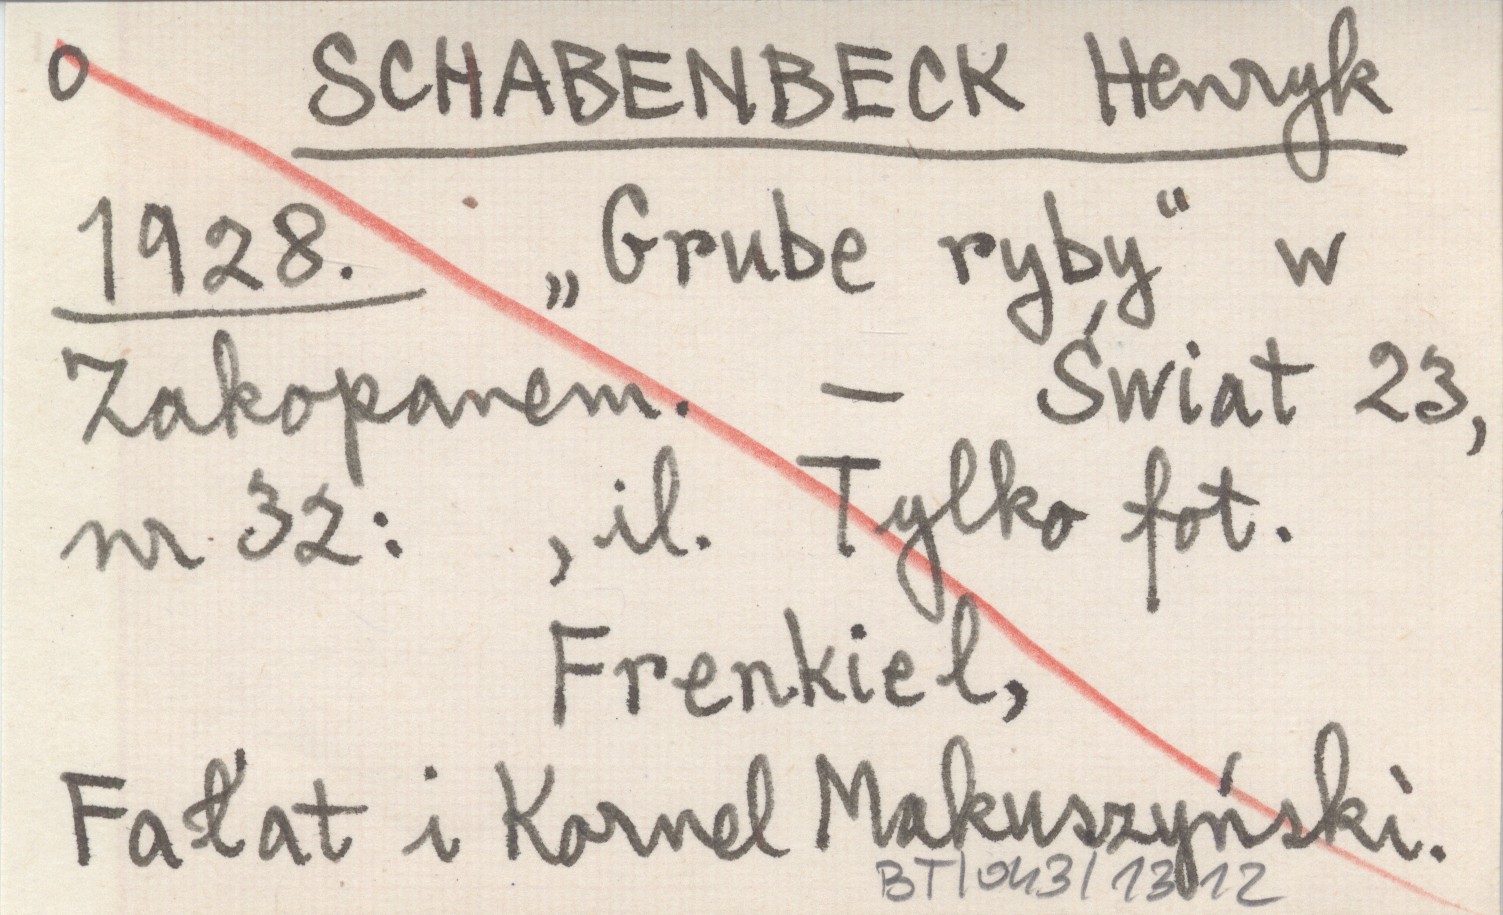 o SCHABENBECK Henryk
1928. „Grube ryby“ w
Zakopanem. — Świat 23,
nr 32: , il. Tylko fot.
Frenkiel,
Fałat i Kornel Makuszyński.
BT/043/1312